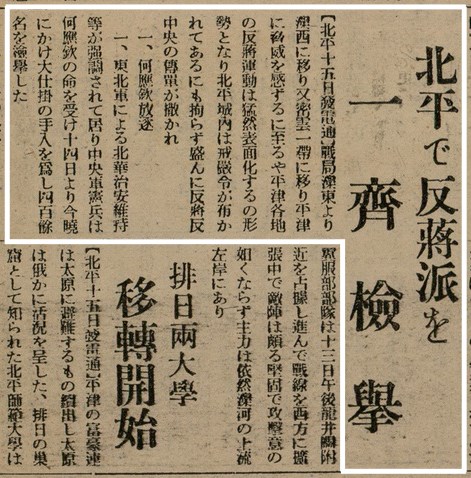 北平で反蔣派を
一齊檢擧
【北平十五日發電通】戰局灤東より
灤西に移り又密雲一帶に移り平津
に脅威を感ずるに至るや平津各地
の反蔣運動は猛然表面化するの形
勢となり北平城內は戒嚴令が布か
れてあるにも拘らず盛んに反蔣反
中央の傳單が撒かれ
一、何應欽放逐
一、東北軍による北華治安維持
等が强調されて居り中央軍憲兵は
何應欽の命を受け十四日より今曉
にかけ大仕掛の手入を爲し四百餘
名を檢擧した
服部部隊は十三日午後龍井關附
近を占據し進んで戰線を西方に擴
張中で敵陣は頗る堅固で攻擊意の
如くならず主力は依然灤河の上流
左岸にあり
排日兩大學
移轉開始
【北平十五日發電通】平津の富豪連
は太原に避難するもの續出し太原
は俄かに活況を呈した、排日の巢
窟として知られた北平師範大學は